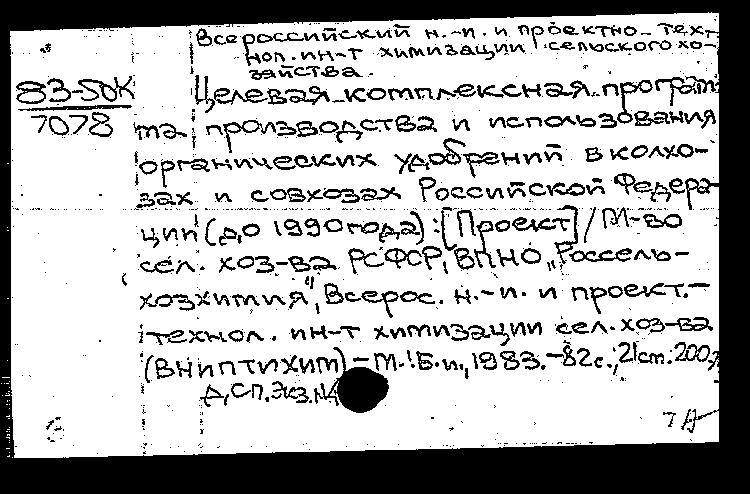 Всероссийский н.-и. и проектно-техн
нол. ин-т химизации сельского хо-
зяйства.
83-50К
7078
Целевая комплексная програм
ма производства и использования
органических удобрений в колхо-
зах и совхозах Российской Федера-
ции (до 1990 года) : [Проект] / М-во
сел. хоз-ва РСФСР, ВПНО „Россель-
хозхимия", Всерос. н.-и. и проект.-
технол. ин-т химизации сел. хоз-ва
(ВНИПТИХИМ) - М. : Б. и., 1983. - 82 с.; 21 см. 200
Д, СП, Экз. №